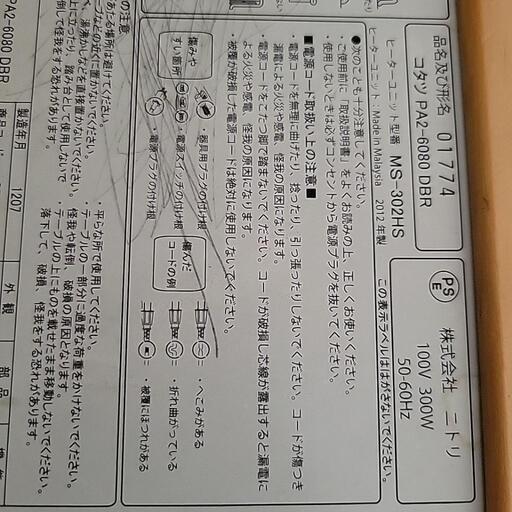 品名及び形名 01774
コタツ PA2-6080 DBR
ヒーターユニット型番 MS-302HS
ヒーターユニット : Made in Malaysia 2012年製
PS
E
株式会社 ニトリ
100V 300W
50-60Hz
この表示ラベルははがさないでください。
●次のことも十分注意してください。
・ご使用前に「取扱説明書」をよくお読みの上、正しくお使いください。
・使用しないときは必ずコンセントから電源プラグを抜いてください。
■電源コード取扱い上の注意■
・電源コードを無理に曲げたり、捻ったり、引っ張ったりしないでください。コードが傷つき
漏電による火災や感電、怪我の原因になります。
・電源コードをこたつ脚で踏まないでください。コードが破損し芯線が露出すると漏電に
よる火災や感電、怪我の原因になります。
・被覆が破損した電源コードは絶対に使用しないでください。
傷みや
すい箇所
・器具用プラグの付け根
・電源スイッチの付け根
・電源プラグの付け根
傷んだ
コードの例
・へこみがある
・折れ曲がっている
・被覆にほつれがある
の注意
・平らな所で使用してください。
・テーブルの一部分に過度な荷重をかけないでください。
怪我や転倒、破損の原因となります。
・テーブルの上にものを載せたまま移動しないでください。
落下して、破損、怪我をする恐れがあります。
ある場所は避けてください。
などの近くに置かないでください。
湯沸かしなどを直接置かないでください。
上に立ったり、踏み台として使用しないで
倒して怪我をする恐れがあります。
PA2-6080 DBR
製造年月 1207
外観
部品
機能